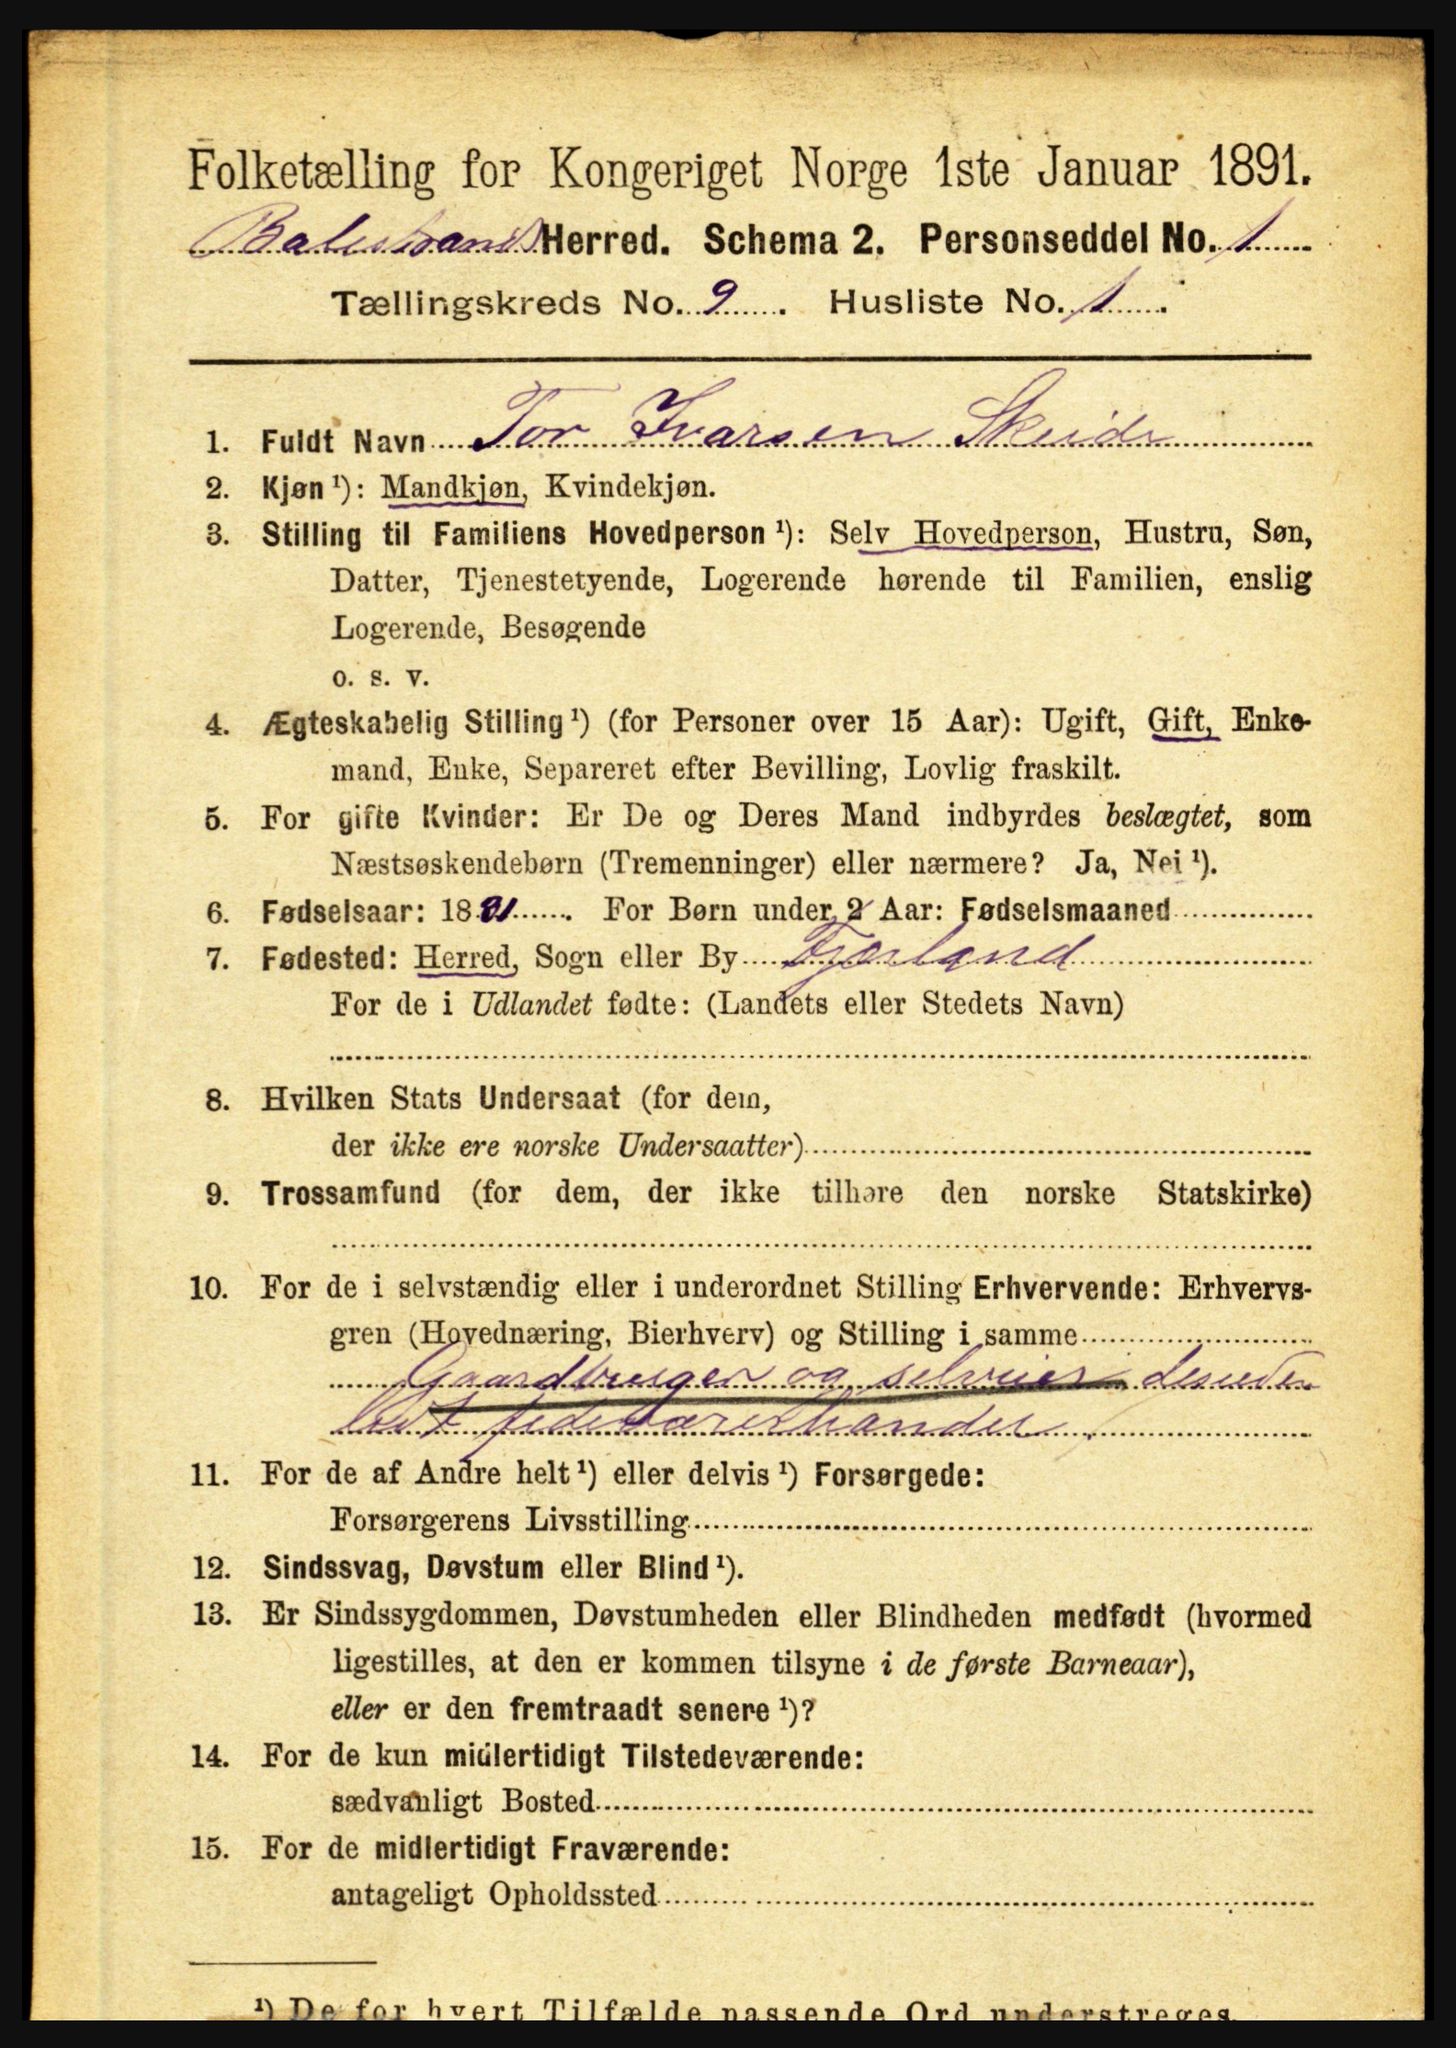 Folketælling for Kongeriget Norge 1ste Januar 1891.
Balestrand Herred. Schema 2. Personseddel No. 1
Tællingskreds No. 9. Husliste No. 1.
1. Fuldt Navn Tor Ivarsen Skeide
2. Kjøn ¹): Mandkjøn, Kvindekjøn.
3. Stilling til Familiens Hovedperson ¹): Selv Hovedperson, Hustru, Søn,
Datter, Tjenestetyende, Logerende hørende til Familien, enslig
Logerende, Besøgende
o. s. v.
4. Ægteskabelig Stilling ¹) (for Personer over 15 Aar): Ugift, Gift, Enke-
mand, Enke, Separeret efter Bevilling, Lovlig fraskilt.
5. For gifte Kvinder: Er De og Deres Mand indbyrdes beslægtet, som
Næstsøskendebørn (Tremenninger) eller nærmere? Ja, Nei ¹).
6. Fødselsaar: 18 . For Børn under 2 Aar: Fødselsmaaned
7. Fødested: Herred, Sogn eller By Fjærland
For de i Udlandet fødte: (Landets eller Stedets Navn)
8. Hvilken Stats Undersaat (for dem,
der ikke ere norske Undersaatter)
9. Trossamfund (for dem, der ikke tilhøre den norske Statskirke)
10. For de i selvstændig eller i underordnet Stilling Erhvervende: Erhvervs-
gren (Hovednæring, Bierhverv) og Stilling i samme
Gaardbruger og selveier desuden
lidt fedevarerhandel
11. For de af Andre helt ¹) eller delvis ¹) Forsørgede:
Forsørgerens Livsstilling
12. Sindssvag, Døvstum eller Blind ¹).
13. Er Sindssygdommen, Døvstumheden eller Blindheden medfødt (hvormed
ligestilles, at den er kommen tilsyne i de første Barneaar),
eller er den fremtraadt senere ¹)?
14. For de kun midlertidigt Tilstedeværende:
sædvanligt Bosted
15. For de midlertidigt Fraværende:
antageligt Opholdssted
¹) De for hvert Tilfælde passende Ord understreges.